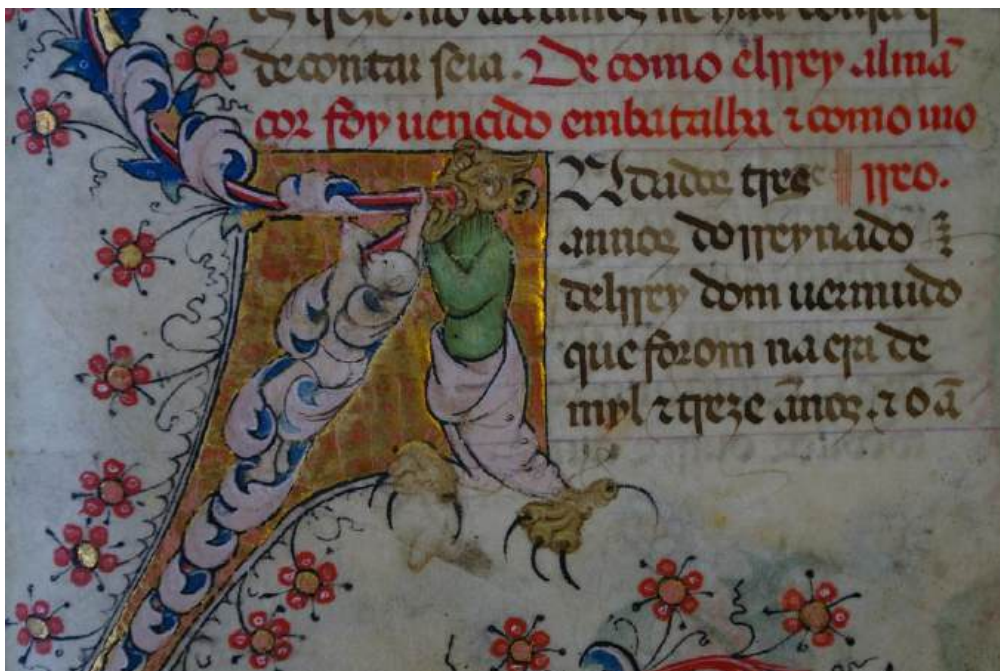 de contar seia. De como elrrey almã
cor foy uencido em batalha ⁊ como mo
rreo.
Andados tres
annos do rreynado
delrrey dom uermudo
que forom na era de
myl ⁊ treze ãnos. ⁊ o ã